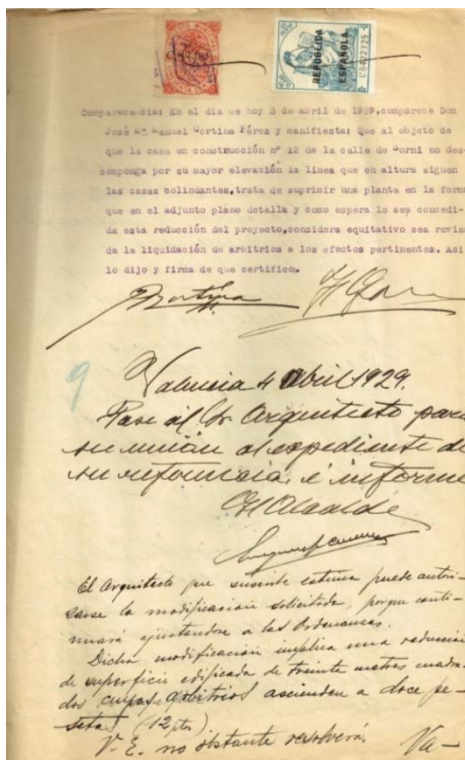 REPÚBLICA
ESPAÑOLA
Comparecencia: En el dia de hoy 3 de abril de 1929, comparece Don
José Mª Manuel Cortina Pérez y manifiesta: Que al objeto de
que la casa en construcción nº 12 de la calle de Gorni no des
componga por su mayor elevación la linea que en altura siguen
las casas colindantes, trata de suprimir una planta en la forma
que en el adjunto plano detalla y como espera le sea concedi-
da esta reducción del proyecto, considera equitativo sea revisa
da la liquidación de arbitrios a los efectos pertinentes. Asi
lo dijo y firma de que certifico.
9
Valencia 4 abril 1929.
Pase al Sr. Arquitecto para
su unión al expediente de
su referencia, é informe
El Alcalde
El Arquitecto que suscribe estima puede autori-
zarse la modificación solicitada, porque conti-
nuará ajustandose a las Ordenanzas.
Dicha modificación implica una reducción
de superficie edificada de treinta metros cuadra-
dos cuyos arbitrios ascienden a doce pe-
setas (12 pts)
V. E. no obstante resolverá.
Va-